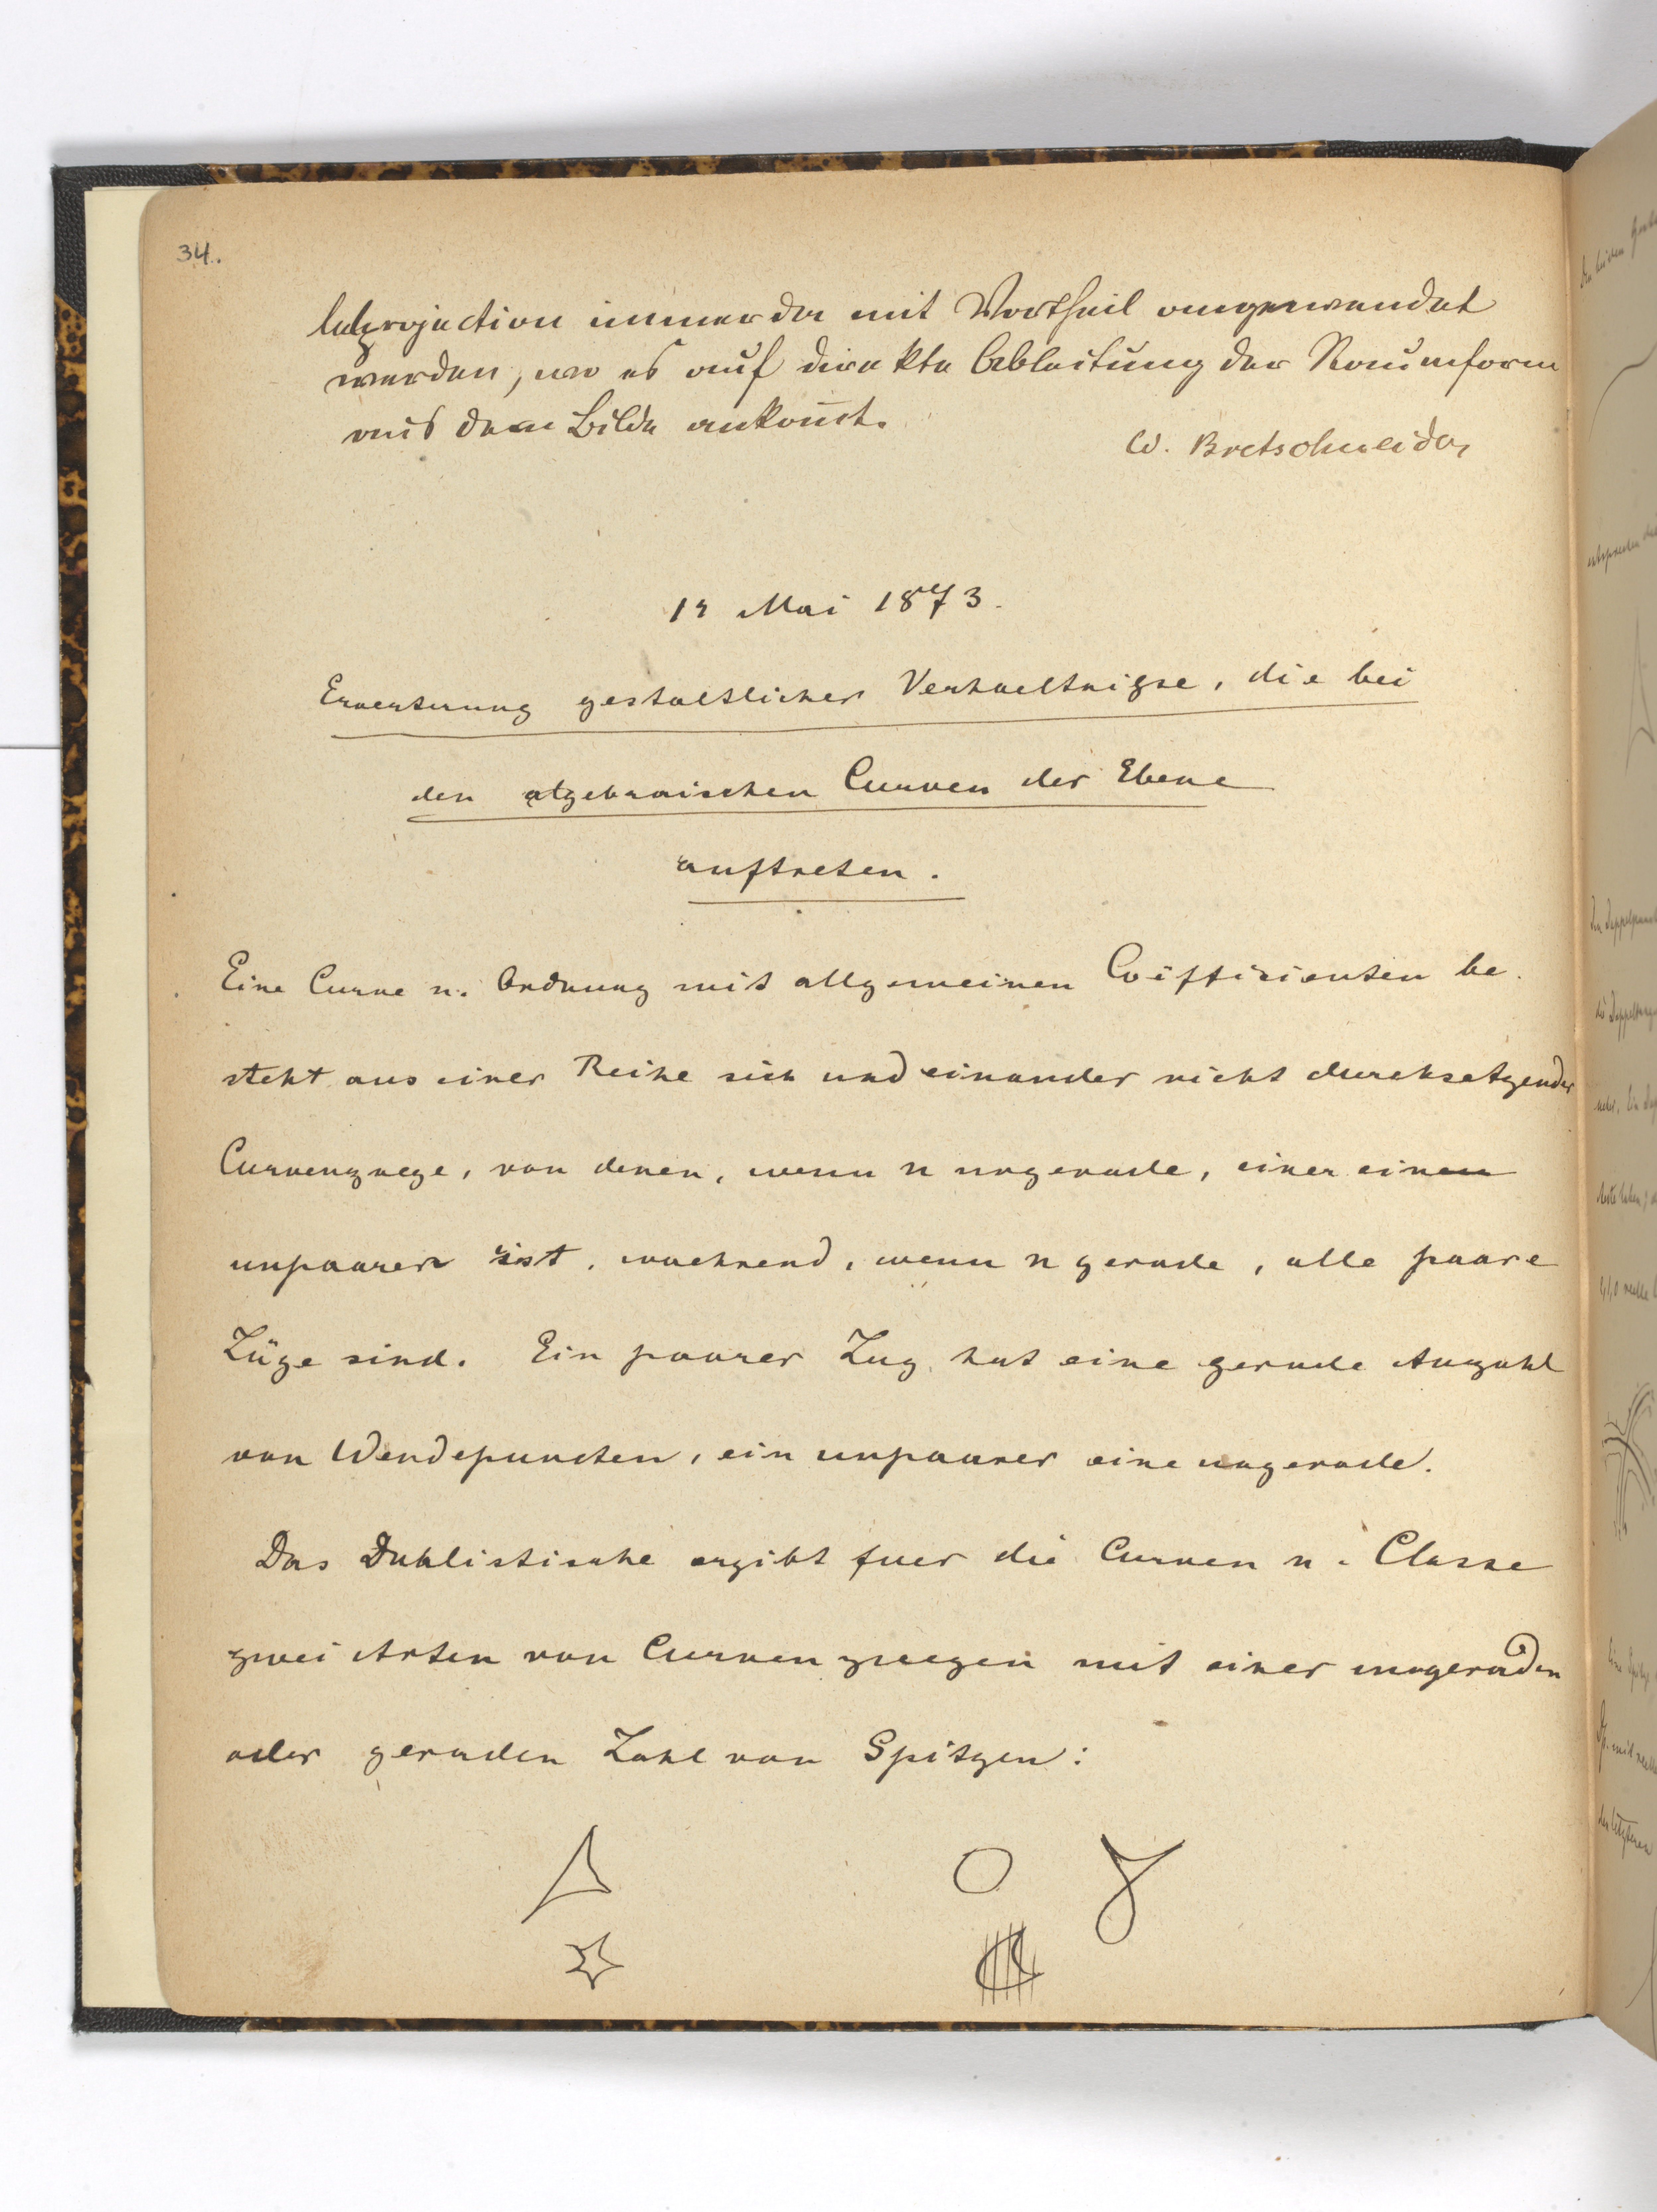 34.
lelprojection immer da mit Vortheil angewendet
werden, wo es auf direkte Ableitung der Raumform
aus dem Bilde ankom̅t.
W. Bretschneider
12 Mai 1873.
Eroerterung gestaltlicher Verhaeltnisse, die bei
den algebraischen Curven der Ebene
auftreten.
Eine Curve n. Ordnung mit allgemeinen Coëffizienten be-
steht aus einer Reihe sich und einander nicht durchsetzender
Curvenzuege, von denen, wenn n ungerade, einer einen
unpaarer ist, waehrend, wenn n gerade, alle paare
Züge sind. Ein paarer Zug hat eine gerade Anzahl
von Wendepuncten, ein unpaarer eine ungerade.
Das Dualistische ergibt fuer die Curven n. Classe
zwei Arten von Curvenzuegen mit einer ungeraden
oder geraden Zahl von Spitzen: